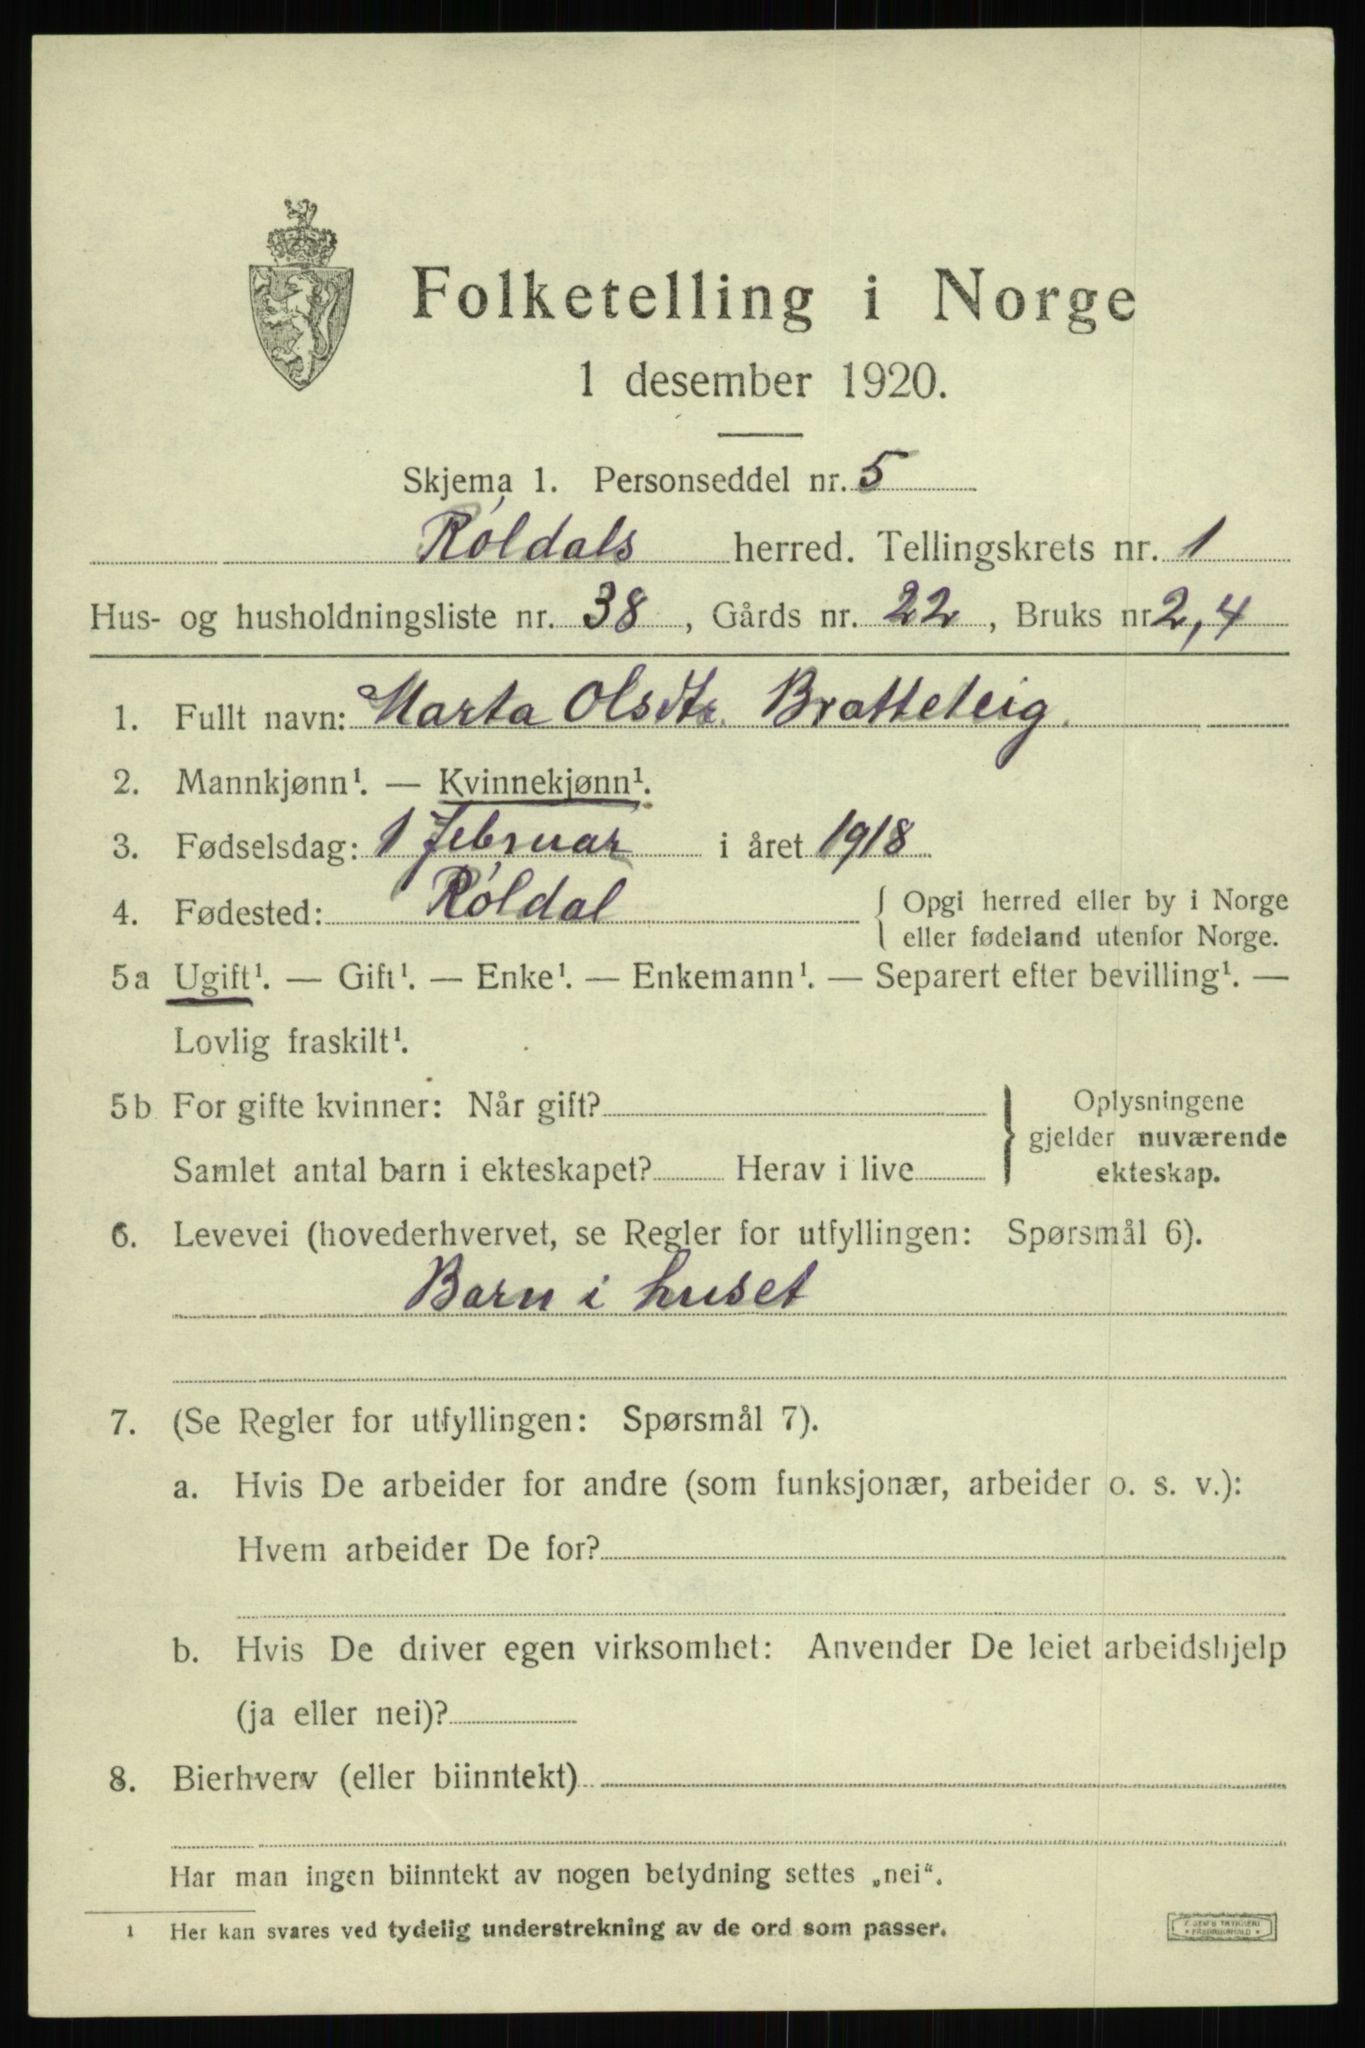 Folketelling i Norge
1 desember 1920.
Skjema 1. Personseddel nr. 5
Røldals herred. Tellingskrets nr. 1
Hus- og husholdningsliste nr. 38, Gårds nr. 22, Bruks nr. 2,4
1. Fullt navn: Marta Olsdtr. Bratteteig.
2. Mannkjønn¹. — Kvinnekjønn¹.
3. Fødselsdag: 1 februar i året 1918
4. Fødested: Røldal { Opgi herred eller by i Norge
eller fødeland utenfor Norge.
5a Ugift¹. — Gift¹. — Enke¹. — Enkemann¹. — Separert efter bevilling¹. —
Lovlig fraskilt¹.
5b For gifte kvinner: Når gift? } Oplysningene
gjelder nuværende
Samlet antal barn i ekteskapet? Herav i live ekteskap.
6. Levevei (hovederhvervet, se Regler for utfyllingen: Spørsmål 6).
Barn i huset
7. (Se Regler for utfyllingen: Spørsmål 7).
a. Hvis De arbeider for andre (som funksjonær, arbeider o. s. v.):
Hvem arbeider De for?
b. Hvis De driver egen virksomhet: Anvender De leiet arbeidshjelp
(ja eller nei)?
8. Bierhverv (eller biinntekt)
Har man ingen biinntekt av nogen betydning settes „nei“.
¹ Her kan svares ved tydelig understrekning av de ord som passer.